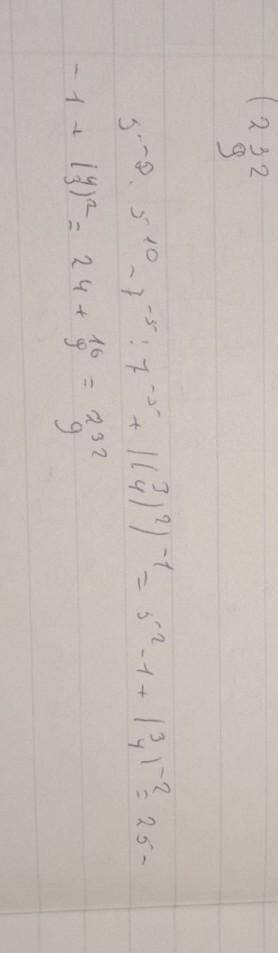 (232/9
5⁻⁸ · 5¹⁰ - 7⁻⁵ : 7⁻⁵ + ((3/4)²)⁻¹ = 5² - 1 + (3/4)⁻² = 25 -
- 1 + (4/3)² = 24 + 16/9 = 232/9